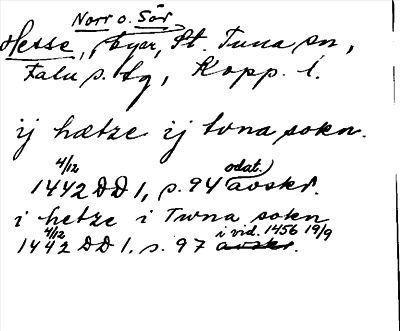 Norr o. Sör
Hesse, byar, St. Tuna sn,
Falu s. lg, Kopp. l.
ij hætze ij tvna sokn.
4/12 odat.
1442 DD 1, s. 94 avskr.
i hetze i Twna sokn
4/12 i vid. 1456 19/9
1442 DD 1. s. 97 avskr.